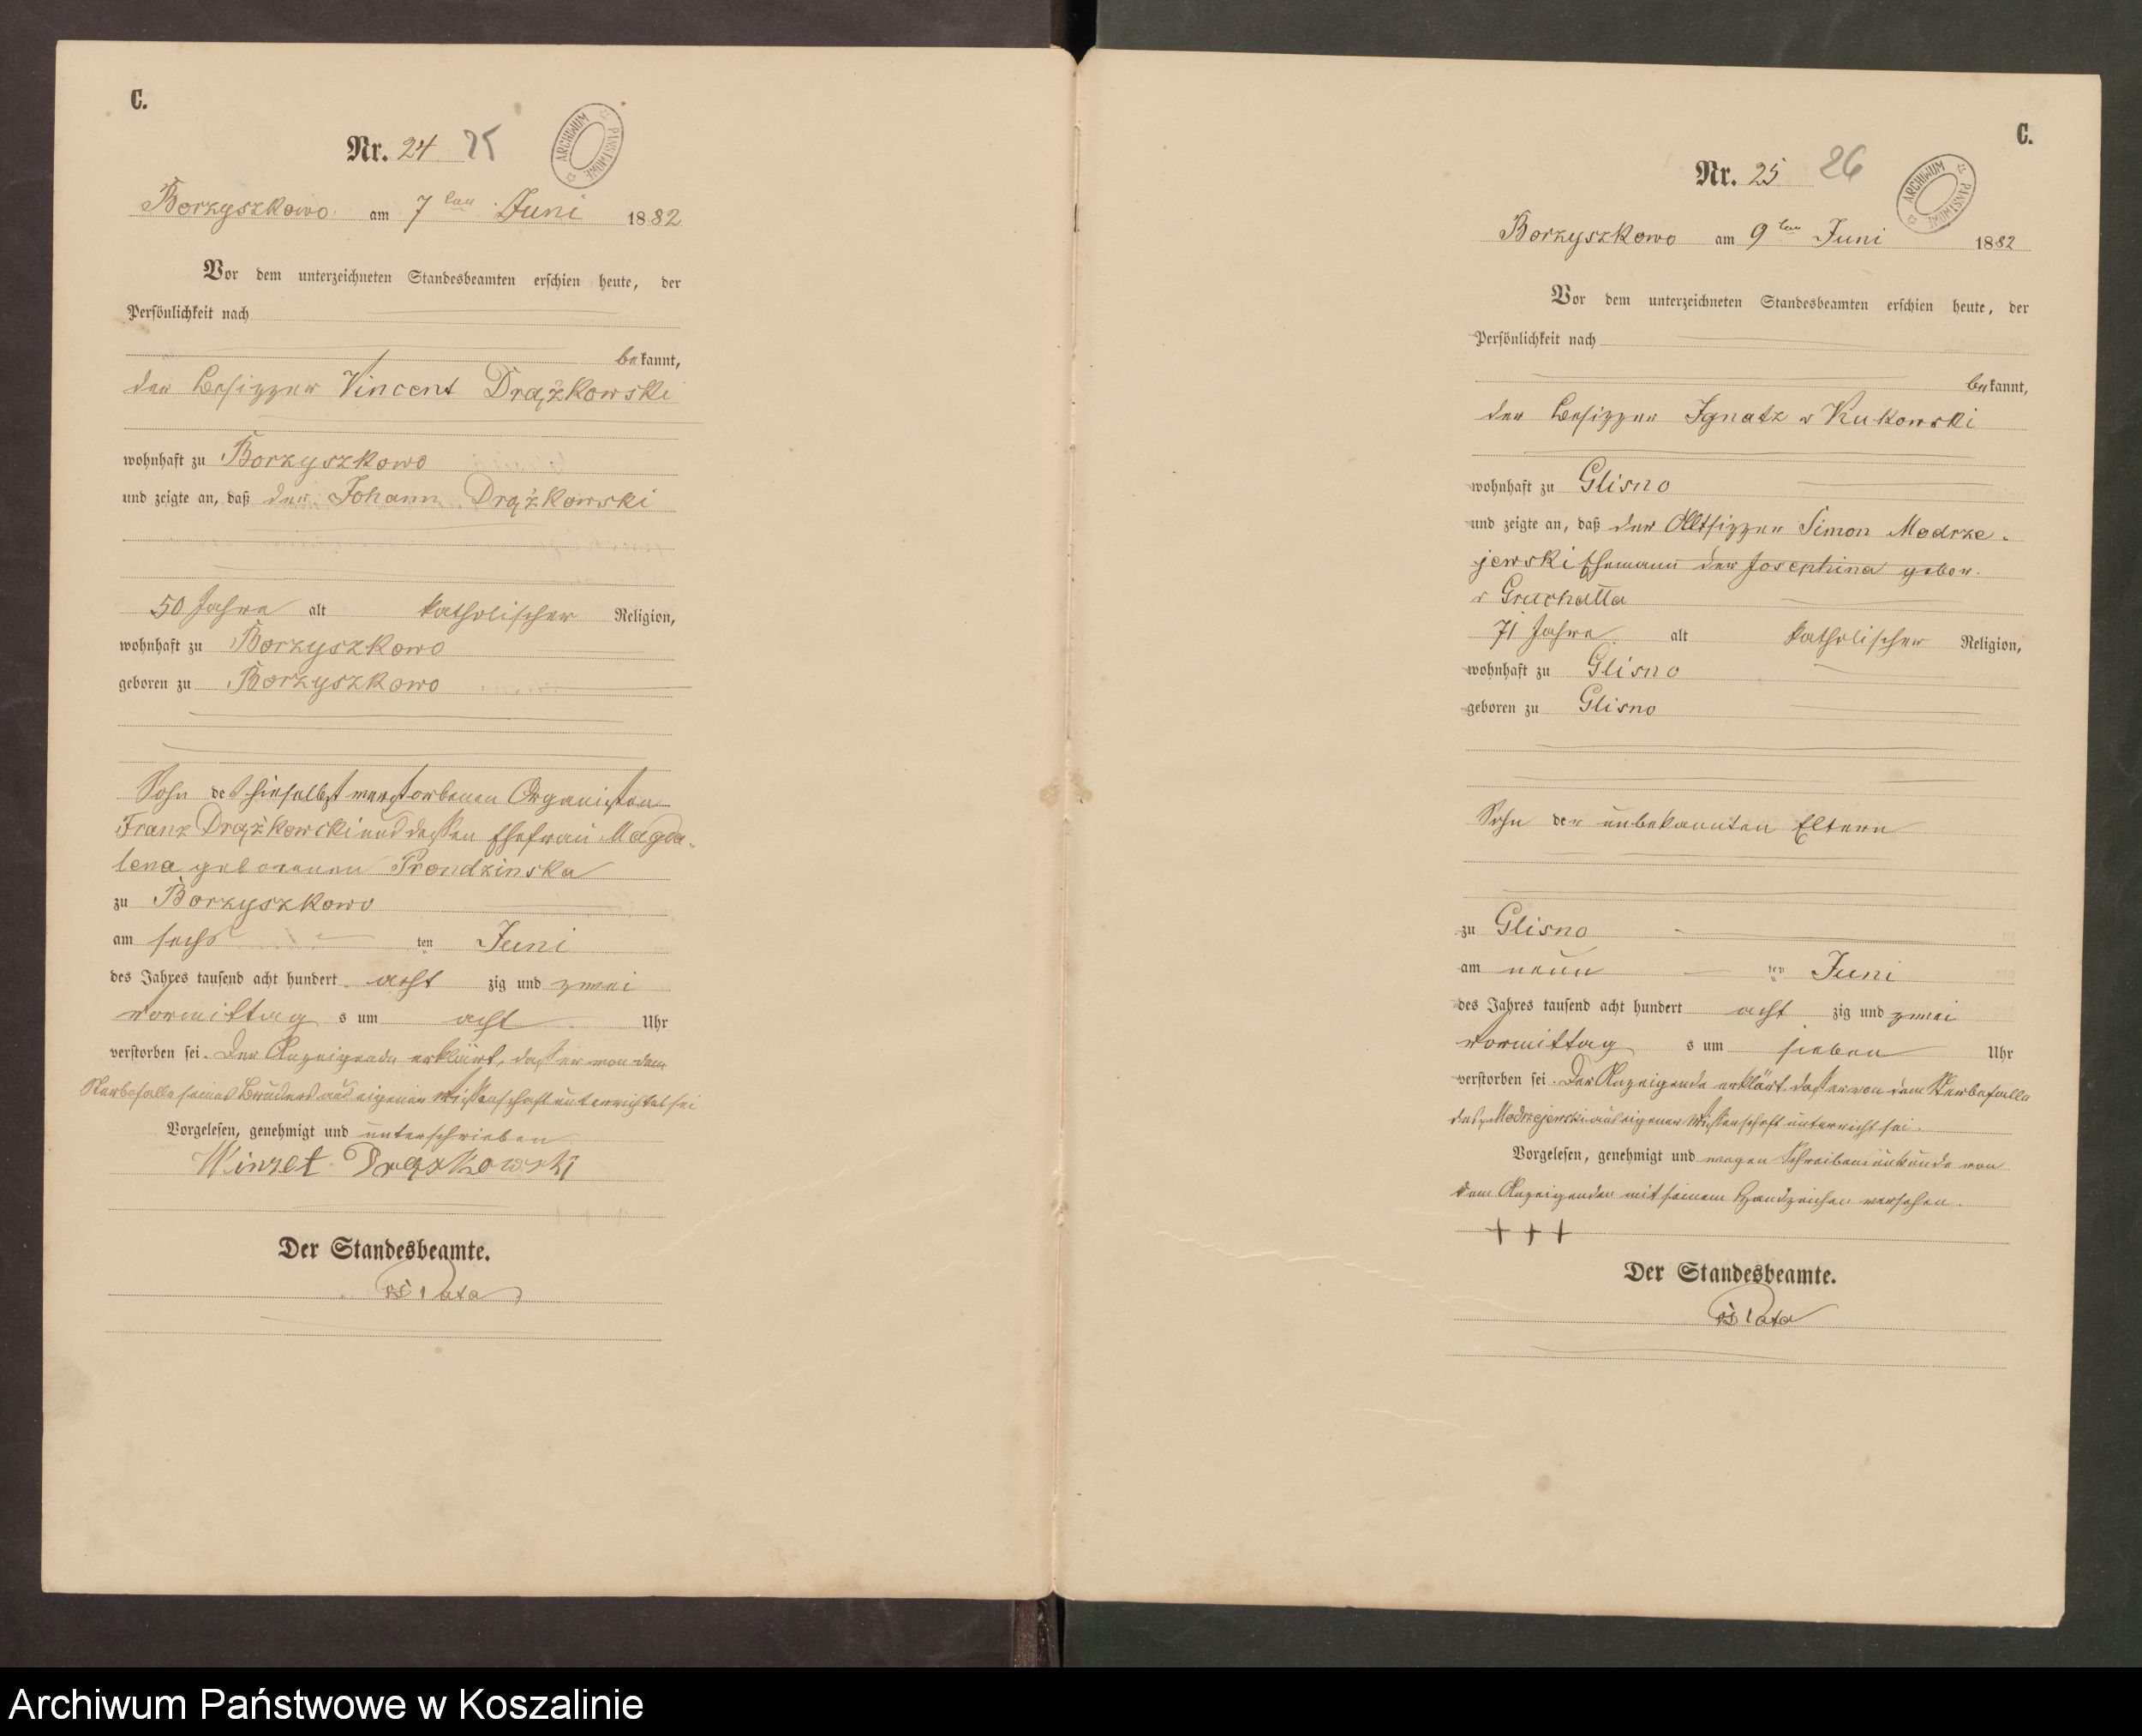 C.
Nr. 24 25
ARCHIWUM PAŃSTWOWE
Borzyszkowo am 7ten Juni 1882
Vor dem unterzeichneten Standesbeamten erschien heute, der
Persönlichkeit nach
bekannt,
der Besitzer Vincent Drążkowski
wohnhaft zu Borzyszkowo
und zeigte an, daß der Johann Drążkowski
50 Jahre alt katholischer Religion,
wohnhaft zu Borzyszkowo
geboren zu Borzyszkowo
Sohn des hieselbst verstorbenen Organisten
Franz Drążkowski und dessen Ehefrau Magda-
lena geborenen Prondzinska
zu Borzyszkowo
am sechs ten Juni
des Jahres tausend acht hundert acht zig und zwei
vormittag s um acht Uhr
verstorben sei. Der Anzeigende erklärt, daß er von dem
Sterbefalle seines Bruders aus eigener Wissenschaft unterrichtet sei
Vorgelesen, genehmigt und unterschrieben
Winzet Drążkowski
Der Standesbeamte.
C.
Nr. 25 26
ARCHIWUM PAŃSTWOWE
Borzyszkowo am 9ten Juni 1882
Vor dem unterzeichneten Standesbeamten erschien heute, der
Persönlichkeit nach
bekannt,
der Besitzer Ignatz v Kukowski
wohnhaft zu Glisno
und zeigte an, daß der Altsitzer Simon Modrze-
jewski Ehemann der Josephina gebor.
v Gruchalla
71 Jahre alt katholischer Religion,
wohnhaft zu Glisno
geboren zu Glisno
Sohn der unbekannten Eltern
zu Glisno
am neun ten Juni
des Jahres tausend acht hundert acht zig und zwei
vormittag s um sieben Uhr
verstorben sei. Der Anzeigende erklärt, daß er von dem Sterbefalle
des Modrzejewski aus eigener Wissenschaft unterricht sei.
Vorgelesen, genehmigt und wegen Schreibensunkunde von
dem Anzeigenden mit seinem Handzeichen versehen.
+ + +
Der Standesbeamte.
Archiwum Państwowe w Koszalinie